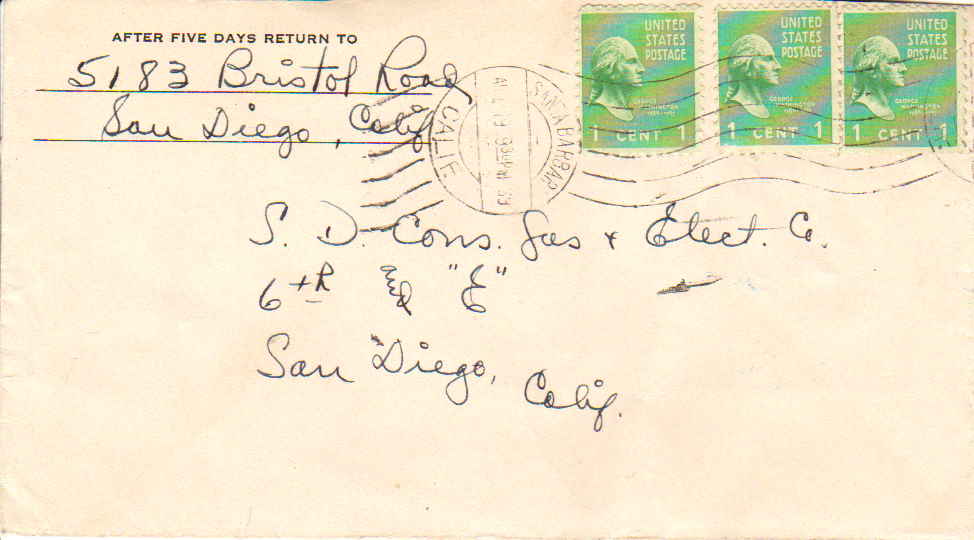 AFTER FIVE DAYS RETURN TO
5183 Bristol Road
San Diego, Calif
SANTA BARBARA
CALIF
UNITED STATES POSTAGE
GEORGE WASHINGTON
1 CENT 1
UNITED STATES POSTAGE
GEORGE WASHINGTON
1 CENT 1
UNITED STATES POSTAGE
GEORGE WASHINGTON
1 CENT 1
S. D. Cons. Gas & Elect. Co.
6th & "E"
San Diego,
Calif.